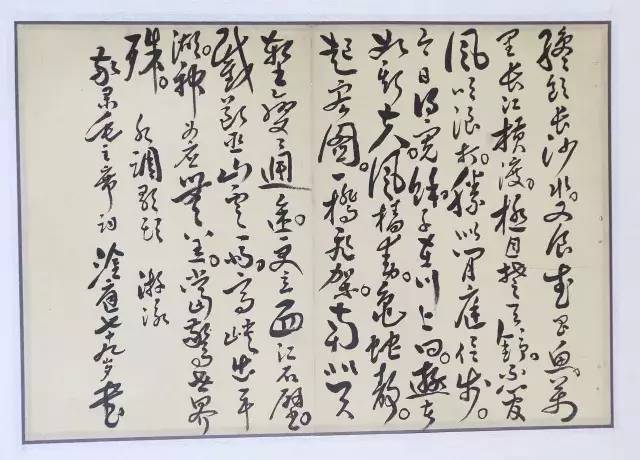 纔飲長沙水。又食武昌魚。萬
里長江橫渡。極目楚天舒。不管
風吹浪打。勝似閒庭信步。
今日得寬餘。子在川上曰。逝者
如斯夫。風檣動。龜蛇靜。
起宏圖。一橋飛架。南北天
塹變通途。更立西江石壁。
截斷巫山雲雨。高峽出平
湖。神女應無恙。當驚世界
殊。
水調歌頭 游泳
敬录毛主席词 七十九岁書